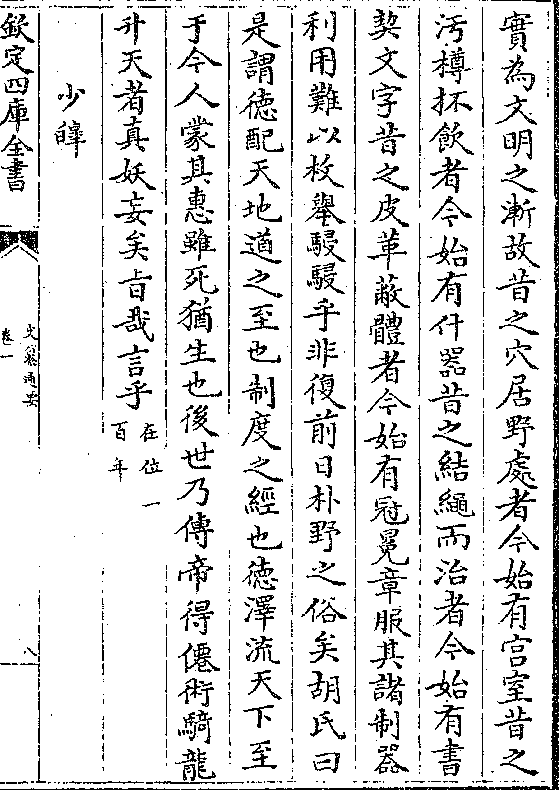 實為文明之漸故昔之穴居野處者今始有宫室昔之
汚樽抔飲者今始有什器昔之結繩而治者今始有書
契文字昔之皮革蔽體者今始有冠冕章服其諸制器
利用難以枚舉駸駸乎非復前日朴野之俗矣胡氏曰
是謂徳配天地道之至也制度之經也徳澤流天下至
于今人蒙其惠雖死猶生也後世乃傳帝得僊術騎龍
升天者真妖妄矣旨哉言乎在位一
百年
少皥
欽定四庫全書
史纂通要
卷一
八